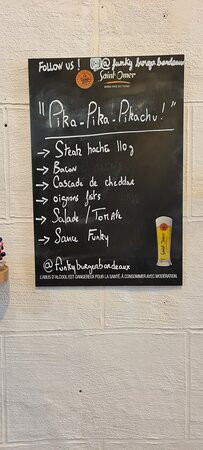 Follow us ! @funky burger bordeaux
Saint Omer
"Pika-Pika-Pikachu!"
→ Steak haché 110g
→ Bacon
→ Cascade de cheddar
→ oignons frits
→ Salade / Tomate
→ Sauce Funky
@funkyburgerbordeaux
L'ABUS D'ALCOOL EST DANGEREUX POUR LA SANTÉ, À CONSOMMER AVEC MODÉRATION.